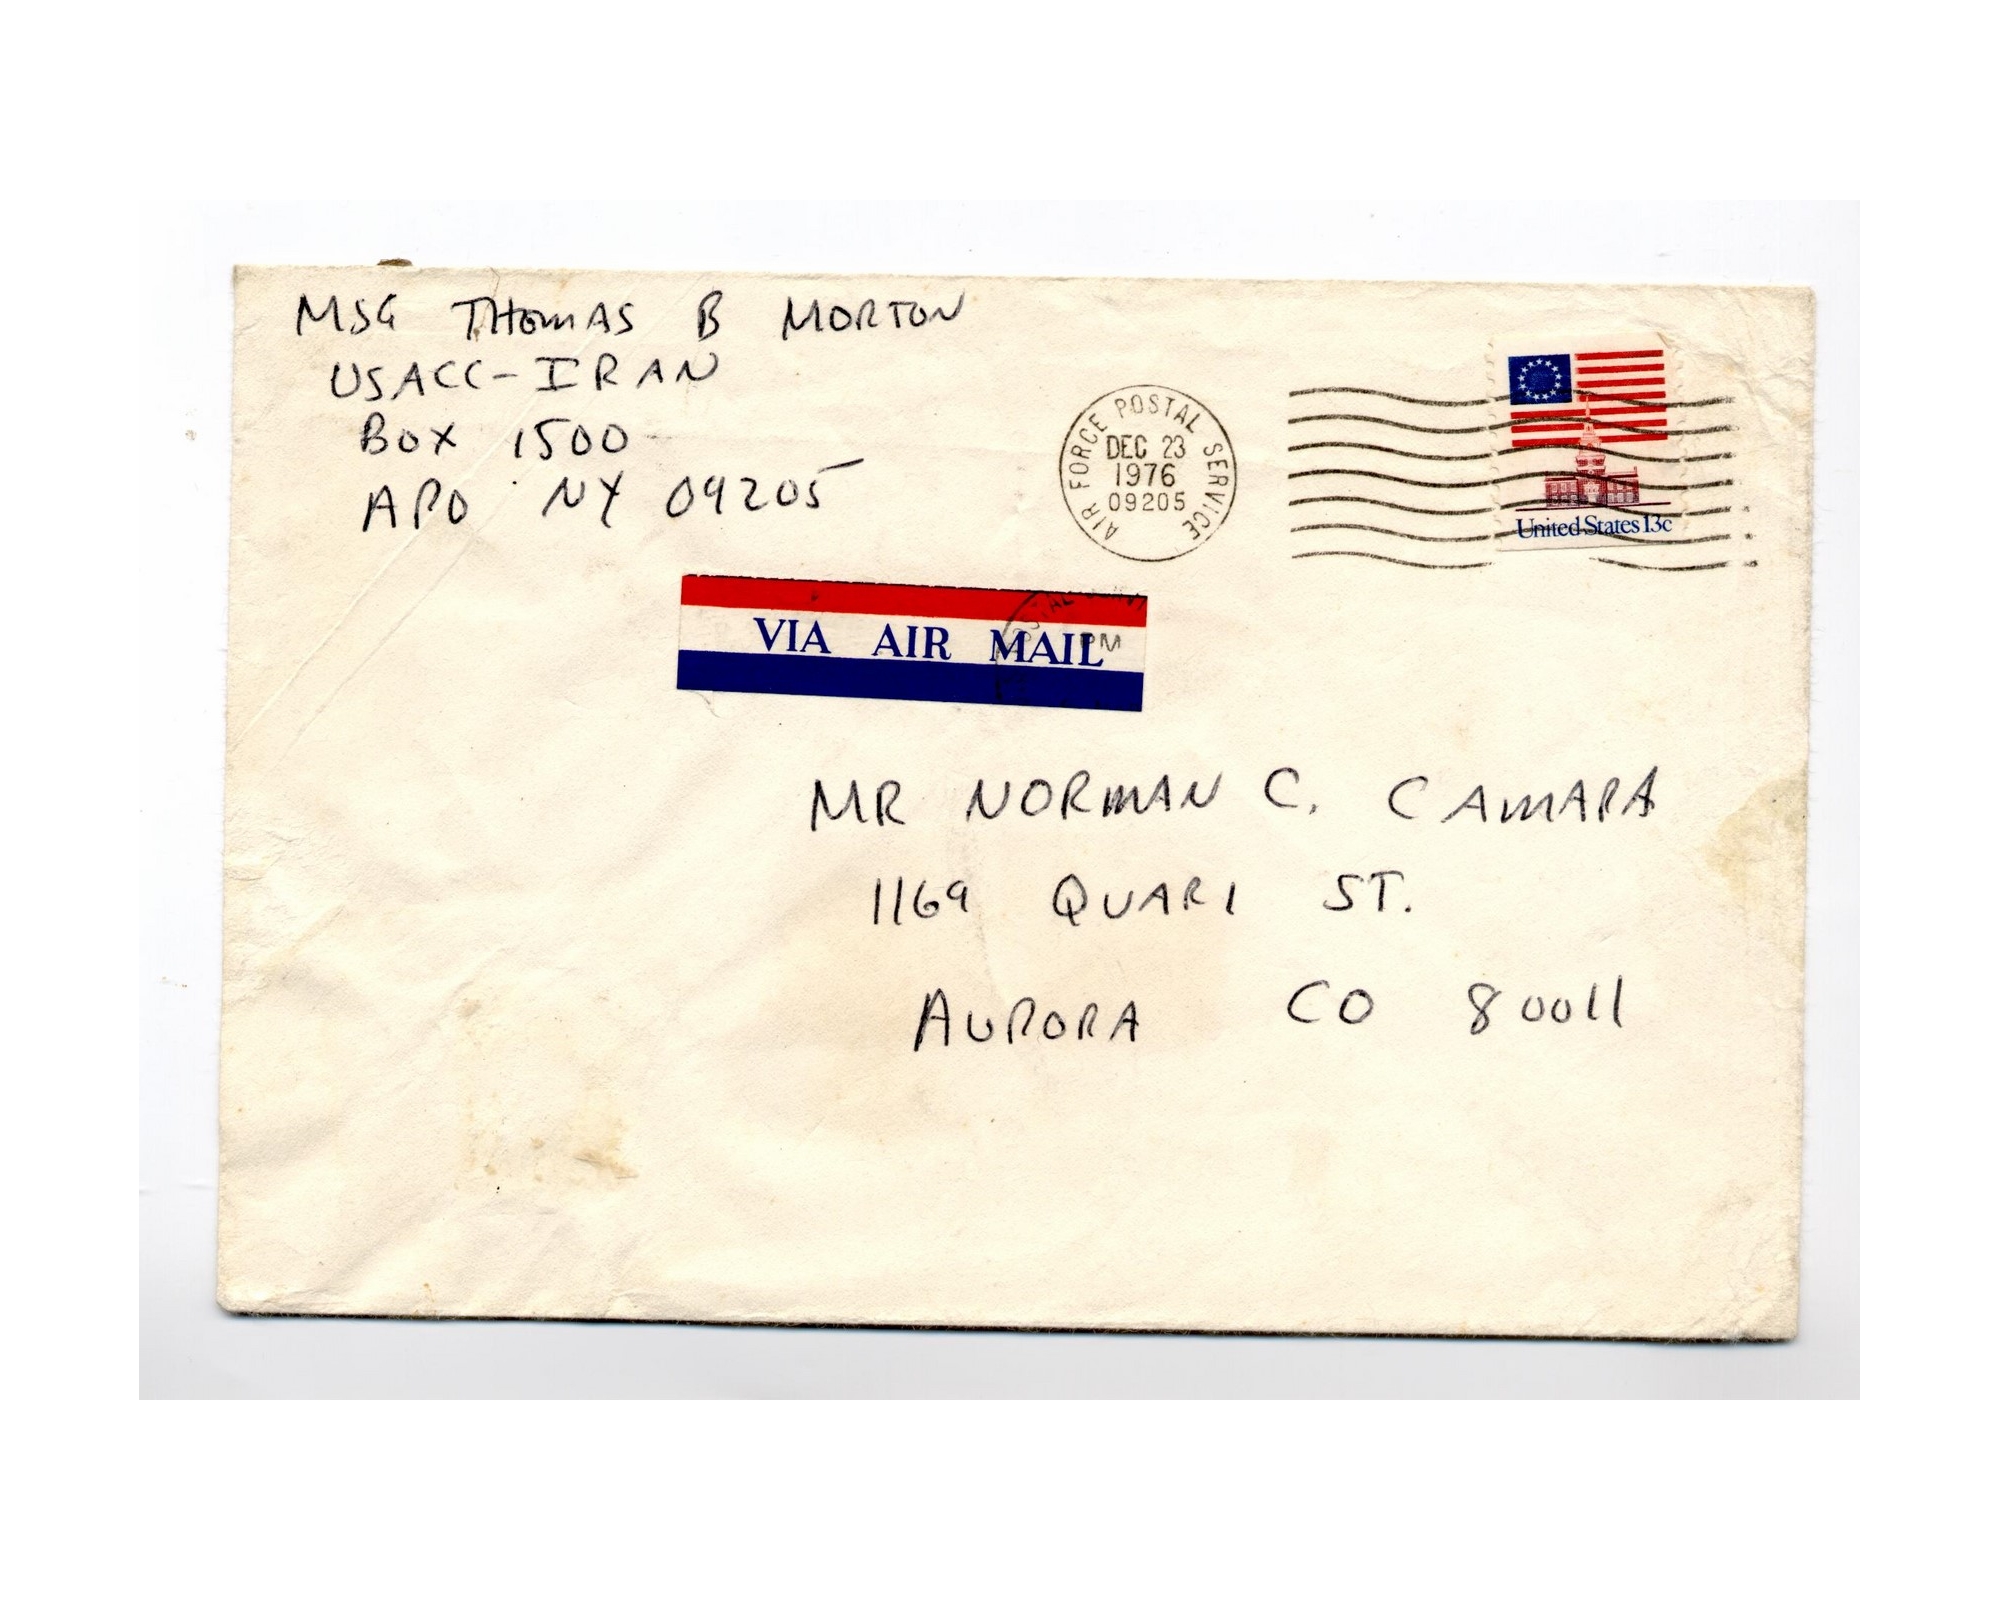 MSG THOMAS B MORTON
USACC-IRAN
BOX 1500
APO NY 09205
AIR FORCE POSTAL SERVICE
DEC 23
1976
09205
United States 13c
VIA AIR MAIL
PM
MR NORMAN C. CAMARA
1169 QUARI ST.
AURORA CO 80011